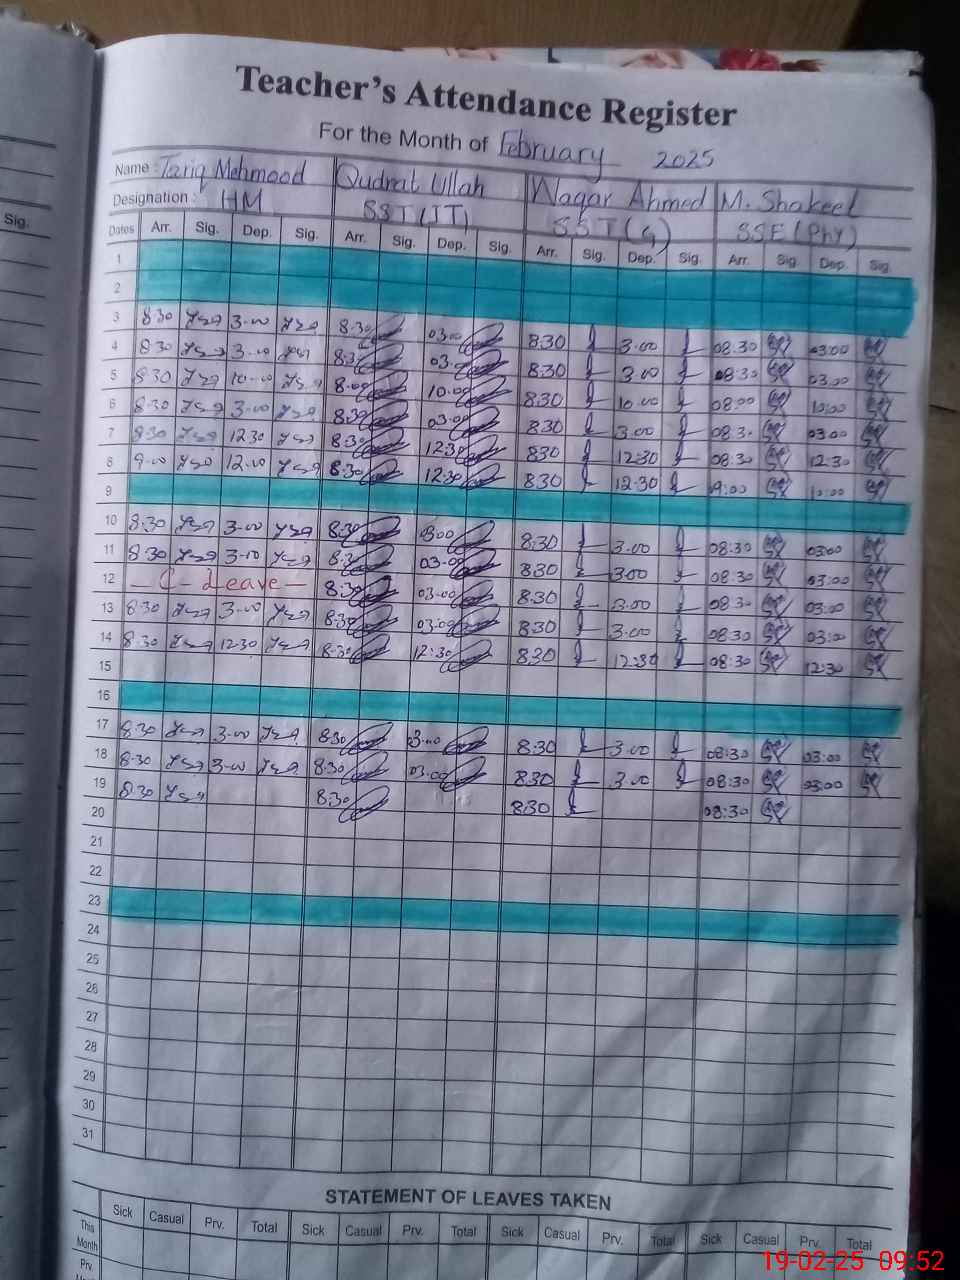 Teacher's Attendance Register
For the Month of February 2025
Name : Tariq Mehmood Qudrat Ullah Waqar Ahmed M. Shakeel
Designation : HM SST(IT) SST(G) SSE(Phy)
Sig.
Dates Arr. Sig. Dep. Sig. Arr. Sig. Dep. Sig. Arr. Sig. Dep. Sig. Arr. Sig Dep. Sig
1
2
3 8:30 3-00 8:30 03:00 8:30 3.00 08:30 03:00
4 8:30 3-00 8:30 03: 8:30 3.00 08:30 03:00
5 8:30 10-00 8:00 10:00 8:30 10.00 08:00 10:00
6 8:30 3-00 8:30 03:00 8:30 3.00 08:30 03:00
7 8:30 12:30 8:30 12:30 8:30 12:30 08:30 12:30
8 9-00 12-00 8:30 12:30 8:30 12:30 09:00
9
10 8:30 3-00 8:30 03:00 8:30 3.00 08:30 03:00
11 8:30 3-00 8:30 03:00 8:30 3:00 08:30 03:00
12 - C - Leave - 8:30 03:00 8:30 3:00 08:30 03:00
13 8:30 3-00 8:30 03:00 8:30 3.00 08:30 03:00
14 8:30 12:30 8:30 12:30 8:30 12:30 08:30 12:30
15
16
17 8:30 3-00 8:30 03:00 8:30 3.00 08:30 03:00
18 8:30 3-00 8:30 03:00 8:30 3.00 08:30 03:00
19 8:30 8:30 8:30 08:30
20
21
22
23
24
25
26
27
28
29
30
31
STATEMENT OF LEAVES TAKEN
Sick Casual Prv. Total Sick Casual Prv. Total Sick Casual Prv. Total Sick Casual Prv. Total
This
Month
Prv.
19-02-25 09:52